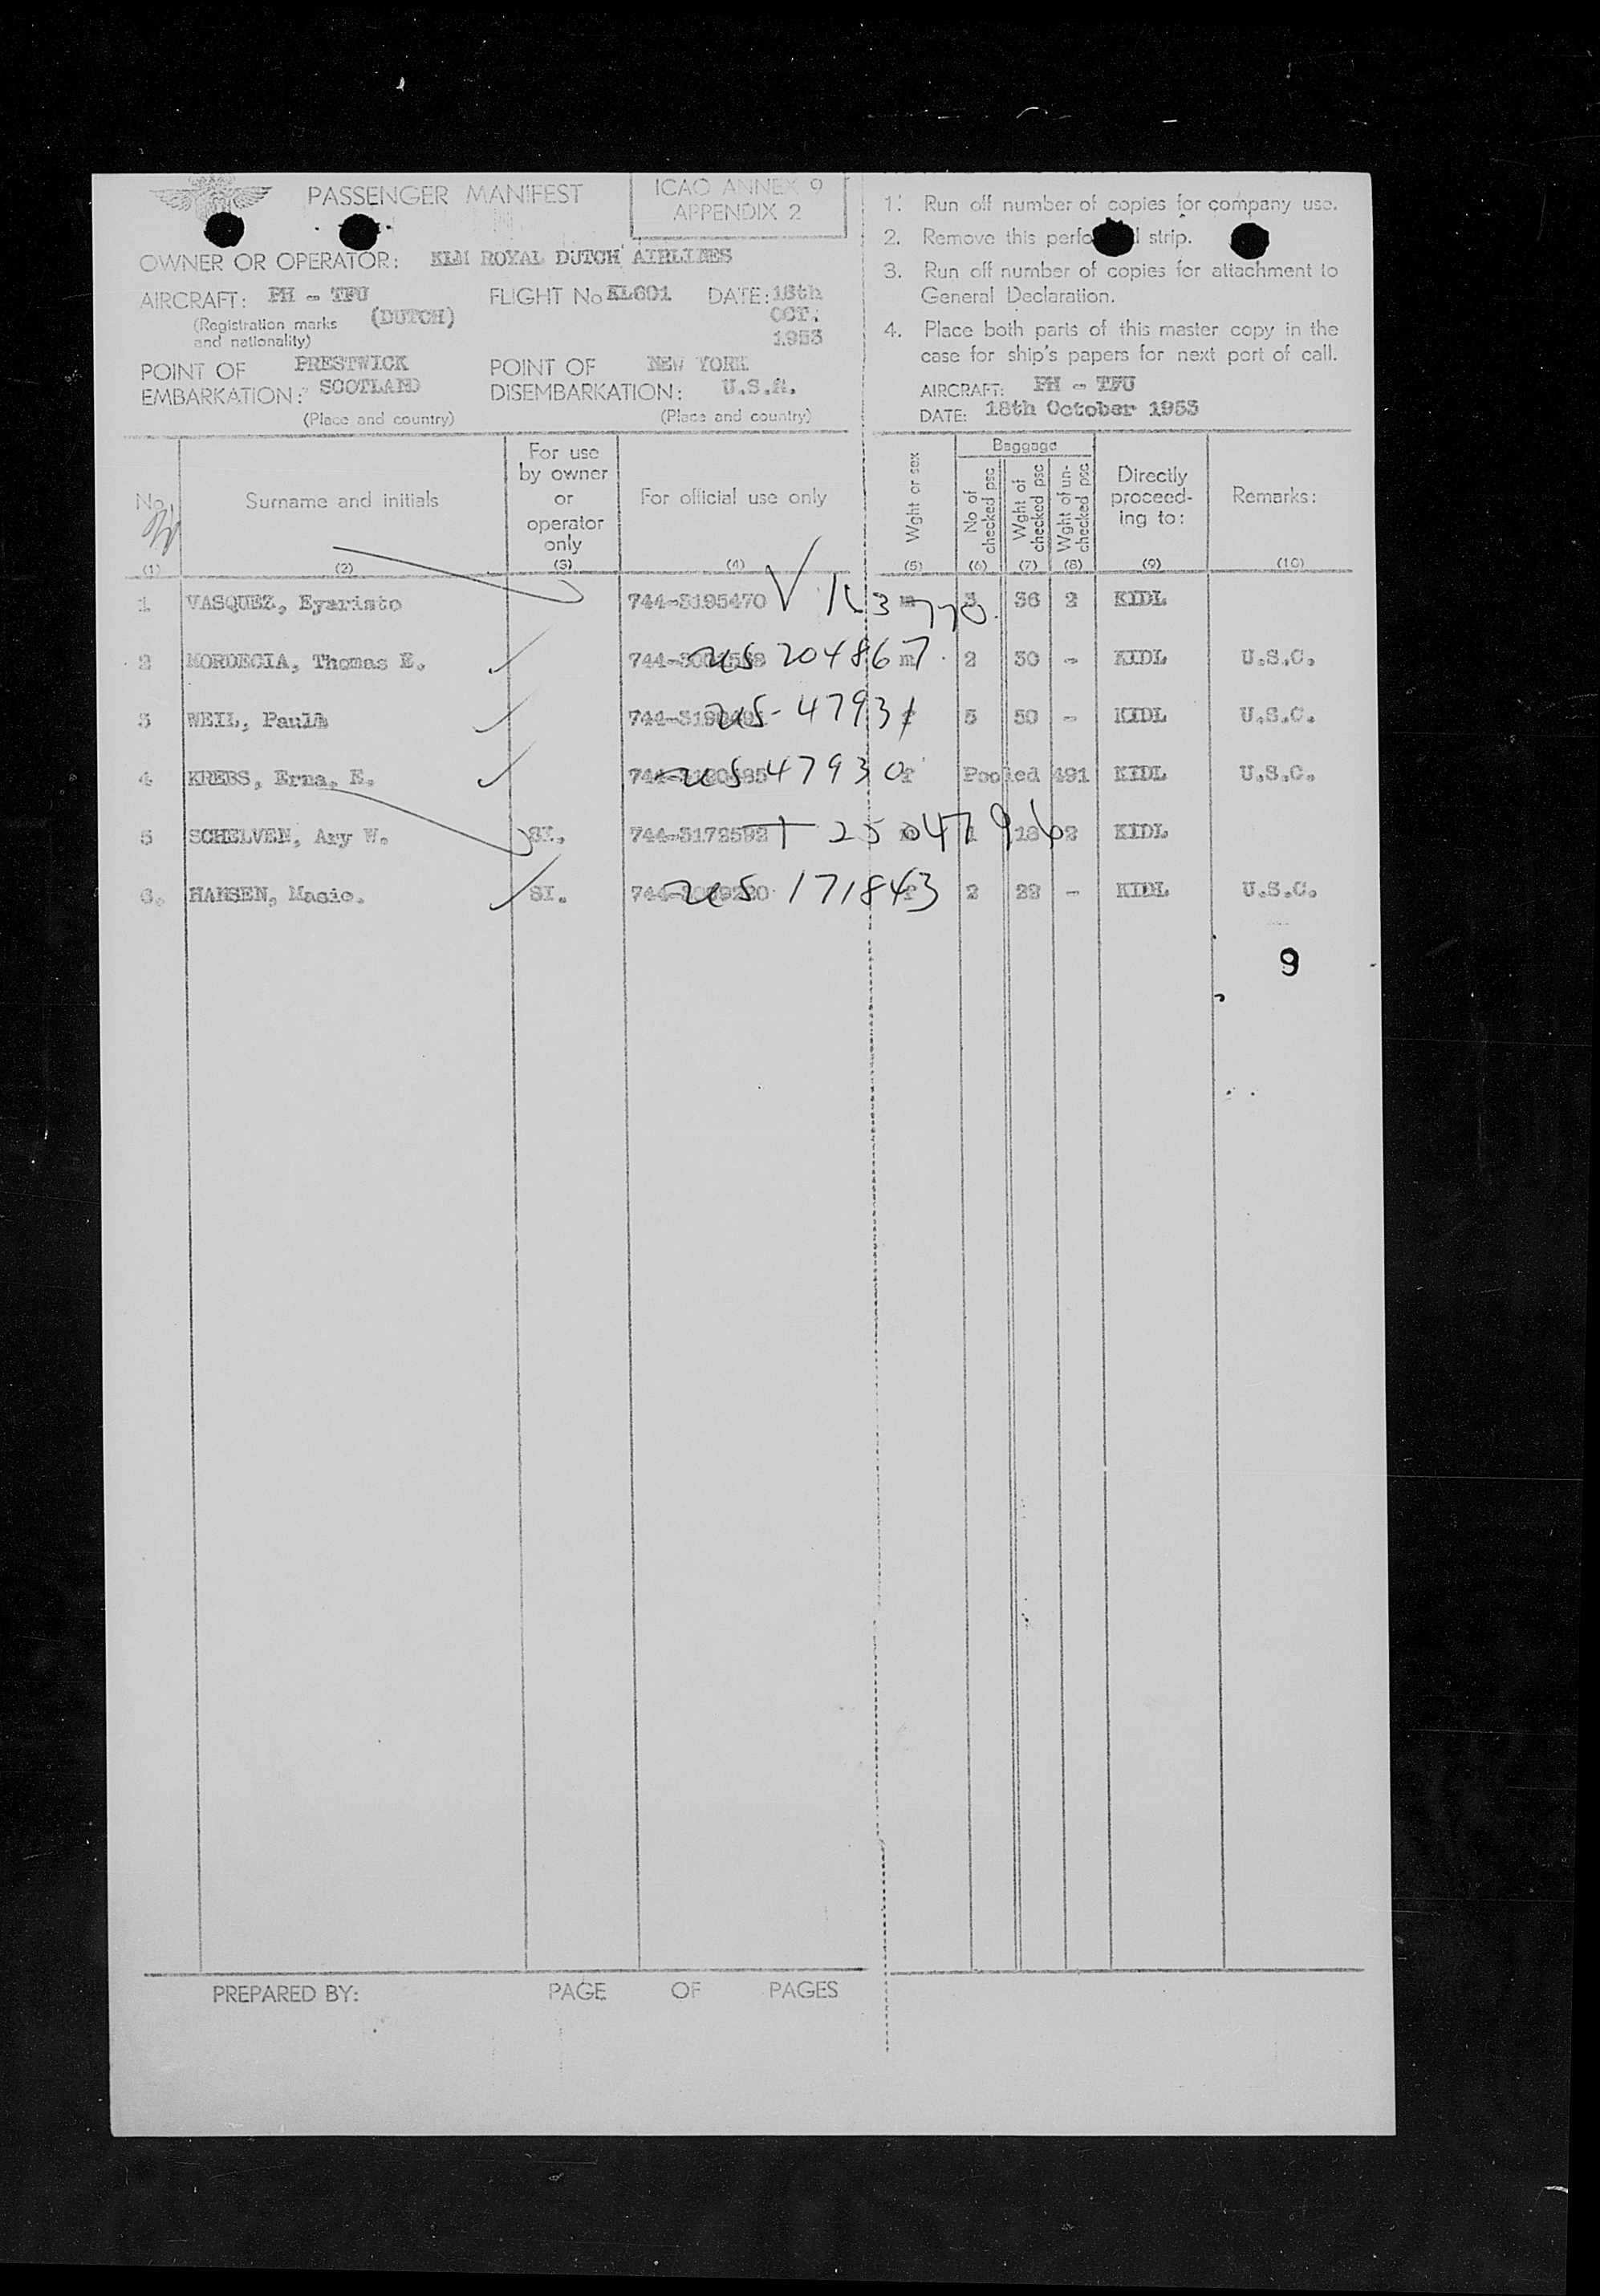 PASSENGER MANIFEST
ICAO ANNEX 9
APPENDIX 2
OWNER OR OPERATOR: KLM ROYAL DUTCH AIRLINES
AIRCRAFT: PH - TFU (DUTCH)
(Registration marks
and nationality)
FLIGHT No KL601
DATE: 18th
OCT.
1953
POINT OF
EMBARKATION: PRESTWICK
SCOTLAND
(Place and country)
POINT OF
DISEMBARKATION: NEW YORK
U.S.A.
(Place and country)
1. Run off number of copies for company use.
2. Remove this strip.
3. Run off number of copies for attachment to
General Declaration.
4. Place both parts of this master copy in the
case for ship's papers for next port of call.
AIRCRAFT: PH - TFU
DATE: 18th October 1953
No. (1)
Surname and initials (2)
For use
by owner
or
operator
only
(3)
For official use only (4)
Wght or sex (5)
Baggage
No of
checked psc (6)
Wght of
checked psc (7)
Wght of un-
checked psc (8)
Directly
proceed-
ing to:
(9)
Remarks: (10)
1 VASQUEZ, Eyaristo 744-3195470 V m 3 36 2 KIDL
2 MORDECIA, Thomas E. us 204867 m 2 30 - KIDL U.S.C.
3 WEIL, Paula us-47931 5 50 - KIDL U.S.C.
4 KREBS, Erna. E. us 47930 f Pooled 491 KIDL U.S.C.
5 SCHELVEN, Ary W. SI. 744-3172592 1 18 2 KIDL
6. HANSEN, Masie. SI. us 171843 f 2 22 - KIDL U.S.C.
9
PREPARED BY: PAGE OF PAGES